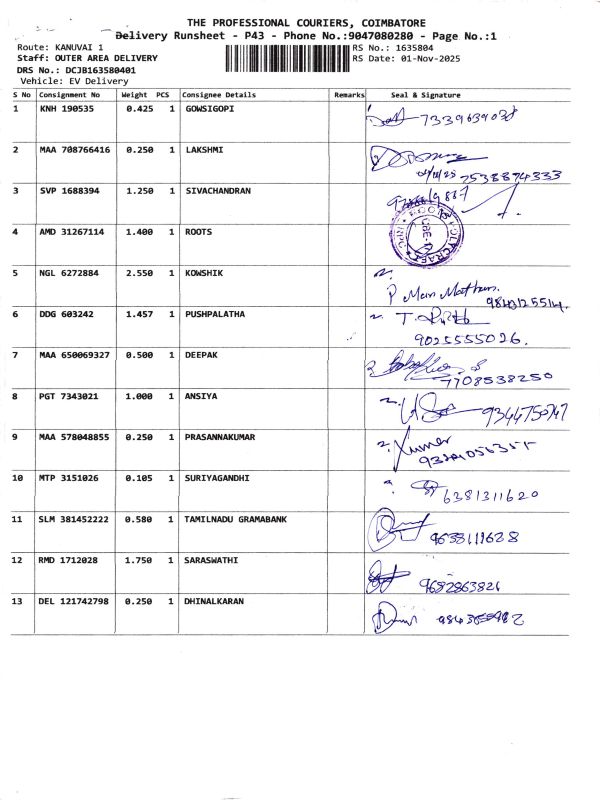 THE PROFESSIONAL COURIERS, COIMBATORE
Delivery Runsheet - P43 - Phone No.:9047080280 - Page No.:1
Route: KANUVAI 1 RS No.: 1635804
Staff: OUTER AREA DELIVERY RS Date: 01-Nov-2025
DRS No.: DCJB163580401
Vehicle: EV Delivery
S No Consignment No Weight PCS Consignee Details Remarks Seal & Signature
1 KNH 190535 0.425 1 GOWSIGOPI 7339639038
2 MAA 708766416 0.250 1 LAKSHMI
7538874333
3 SVP 1688394 1.250 1 SIVACHANDRAN
4 AMD 31267114 1.400 1 ROOTS
5 NGL 6272884 2.550 1 KOWSHIK
P
6 DDG 603242 1.457 1 PUSHPALATHA
9025555026.
7 MAA 650069327 0.500 1 DEEPAK
7708538250
8 PGT 7343021 1.000 1 ANSIYA
9 MAA 578048855 0.250 1 PRASANNAKUMAR
Kumar
10 MTP 3151026 0.105 1 SURIYAGANDHI
6381311620
11 SLM 381452222 0.580 1 TAMILNADU GRAMABANK
9633111628
12 RMD 1712028 1.750 1 SARASWATHI
9682863821
13 DEL 121742798 0.250 1 DHINALKARAN